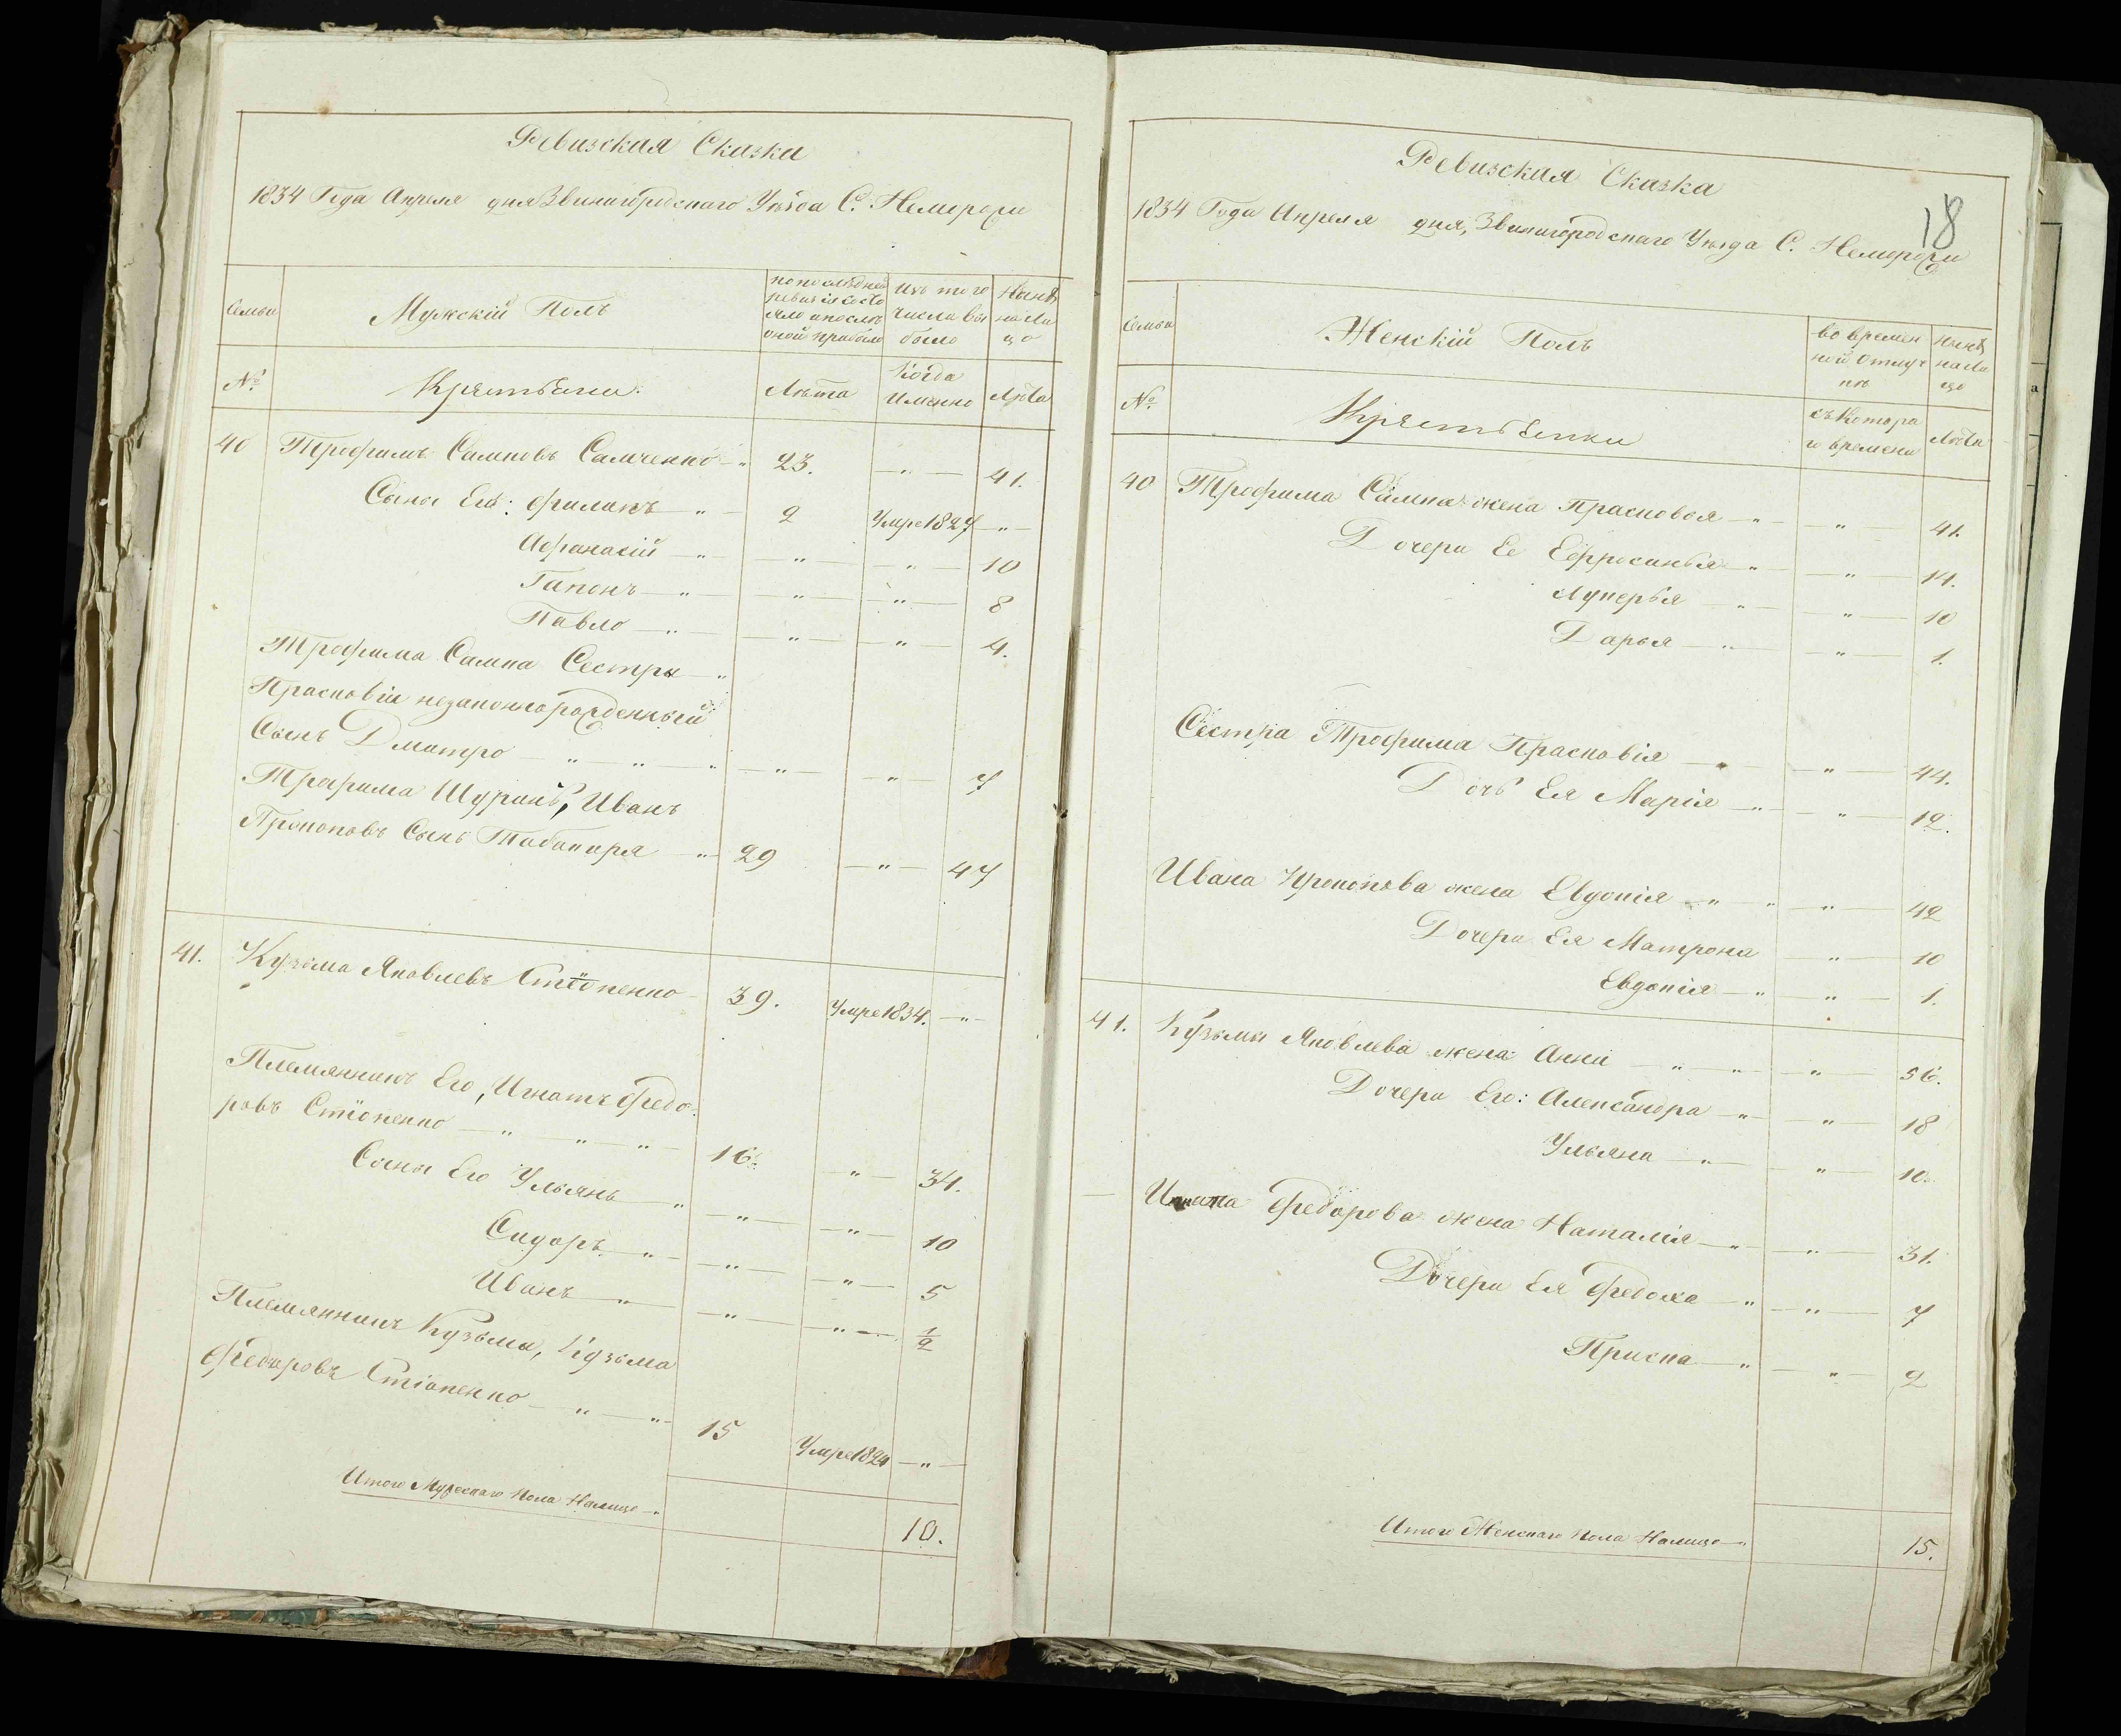 Ревизская Сказка
1834 Года Апреля дня Звинигородскаго Уѣзда С. Неморожи
Семьи
Мужскій Полъ
по послѣдней ревизіи состояло и послѣ оной прибыло
Изъ того числа выбыло
Нынѣ на лицо
№
Крестьяне.
Лѣта
Когда Именно
Лѣта
40 Трофимъ Самковъ Самченко 23. — " — 41.
Сыны Его: Филипъ — " — 2 Умре 1827 — " —
Афанасій — " — " — " — 10
Гапонъ — " — " — " — 8
Павло — " — " — " — 4.
Трофима Самка Сестры — "
Прасковіи незаконнорожденный
Сынъ Дмитро — " — " — " — " — " — 7
Трофима Шуринъ, Иванъ
Прокоповъ Сынъ Табакаря — " — 29 — " — 47
41. Кузьма Яковлевъ Стіопенко 39. Умре 1834. — " —
Племянникъ Его, Игнатъ Федо-
ровъ Стіопенко — " — " — " — 16. — " — 34.
Сыны Его Ульянъ — " — " — " — 10
Сидоръ — " — " — " — 5
Иванъ — " — " — " — 1/2
Племянникъ Кузьмы, Кузьма
Федоровъ Стіопенко — " — " — 15 Умре 1824 — " —
Итого Мужескаго Пола Налицо — " 10.
18
Ревизская Сказка
1834 Года Апреля дня, Звинигородскаго Уѣзда С. Неморожи
Семьи
Женскій Полъ
во времянной отлучкѣ
Нынѣ на лицо
№
Крестьянки
съ Котораго времени
Лѣта
40 Трофима Самка жена Прасковья — " — " — 41.
Дочери Ее Ефросинья — " — " — 14.
Лукерья — " — " — 10
Дарья — " — " — 1.
Сестра Трофима Прасковія — " — " — 44.
Дочь Ея Марія — " — " — 12.
Ивана Прокопова жена Евдокія — " — " — " — 42
Дочери Ея Матрона — " — 10
Евдокія — " — " — 1.
41. Кузьмы Яковлева жена Анна — " — " — " — 56.
Дочери Его: Александра — " — " — 18
Ульяна — " — " — 10.
— Игната Федорова жена Наталія — " — " — 31.
Дочери Ея Федоха — " — " — 7
Приска — " — " — 2
Итого Женскаго Пола Налицо — " 15.